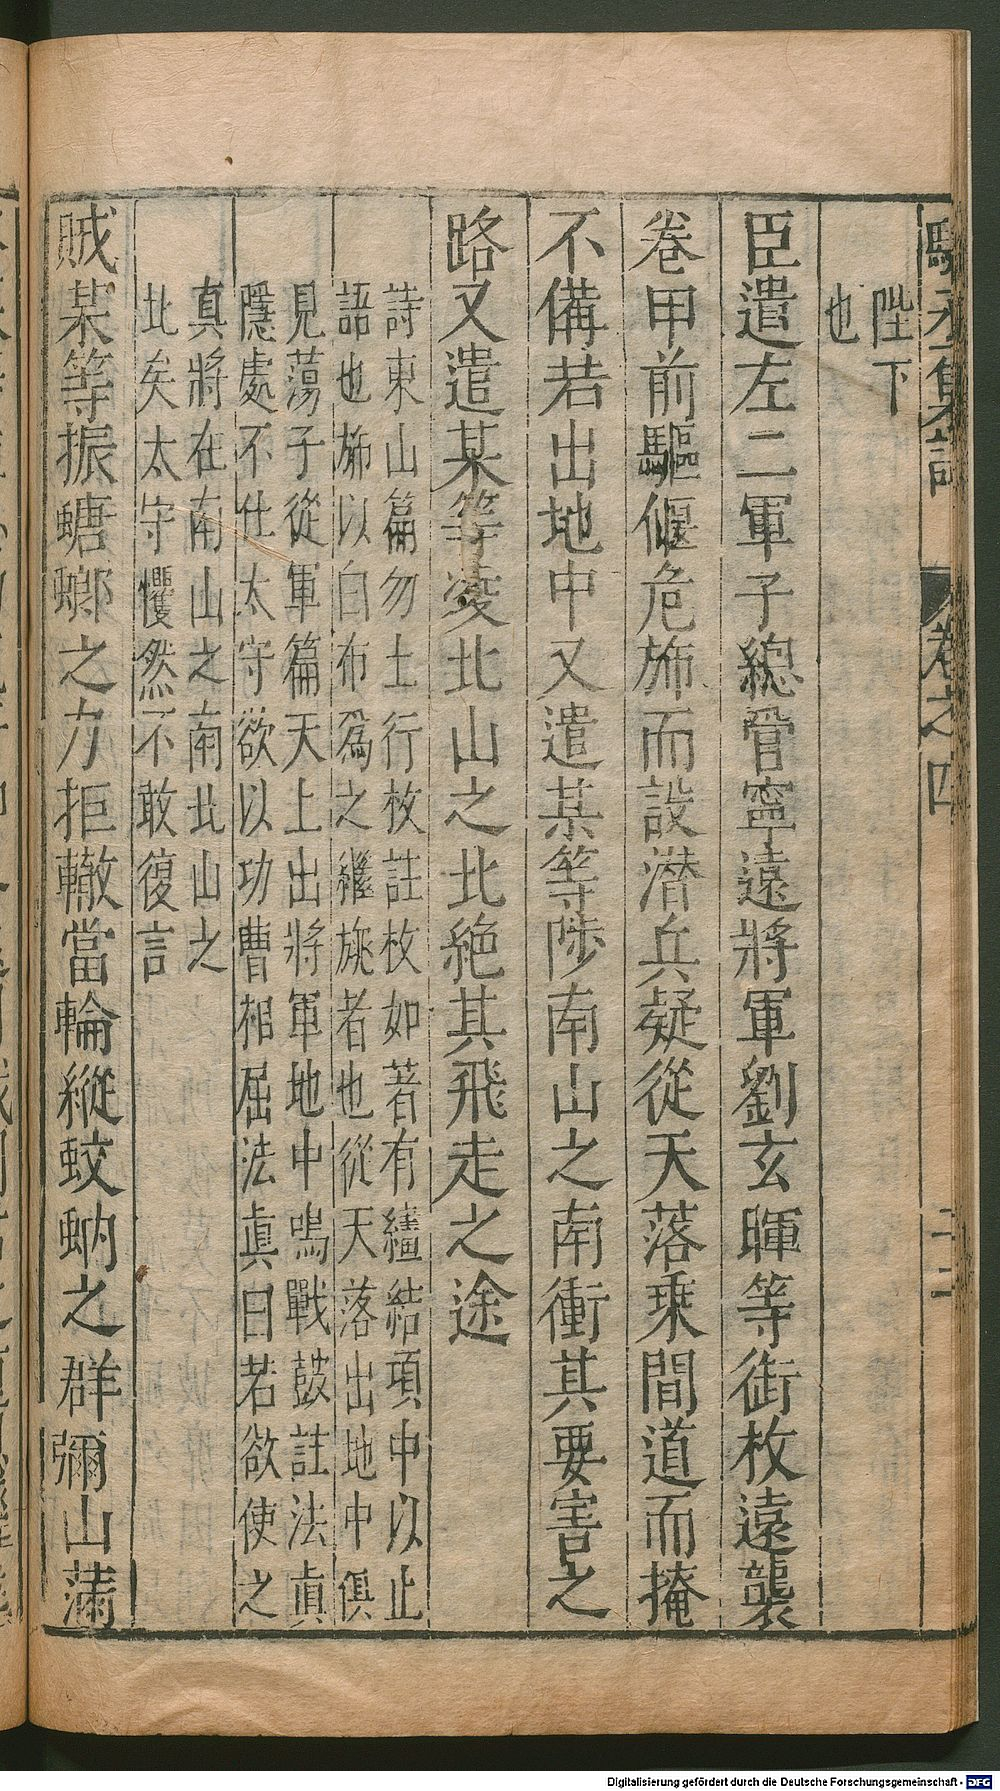 陛下
也
臣遣左二軍子總管寧遠將軍劉玄暉等銜枚遠襲
卷甲前驅偃危斾而設潛兵疑從天落乗間道而掩
不備若出地中又遣某等陟南山之南衝其要害之
路又遣某等凌北山之北絶其飛走之途
詩東山篇勿士行枚註枚如著有繣結項中以止
語也斾以白布爲之繼旐者也從天落出地中俱
見蕩子從軍篇天上出將軍地中鳴戰鼓註法眞
隱處不仕太守欲以功曹相屈法眞曰若欲使之
真將在南山之南北山之
北矣太守懼然不敢復言
賊某等振螗螂之力拒轍當輪縱蛟蚋之群彌山滿
卷之四
Digitalisierung gefördert durch die Deutsche Forschungsgemeinschaft - DFG